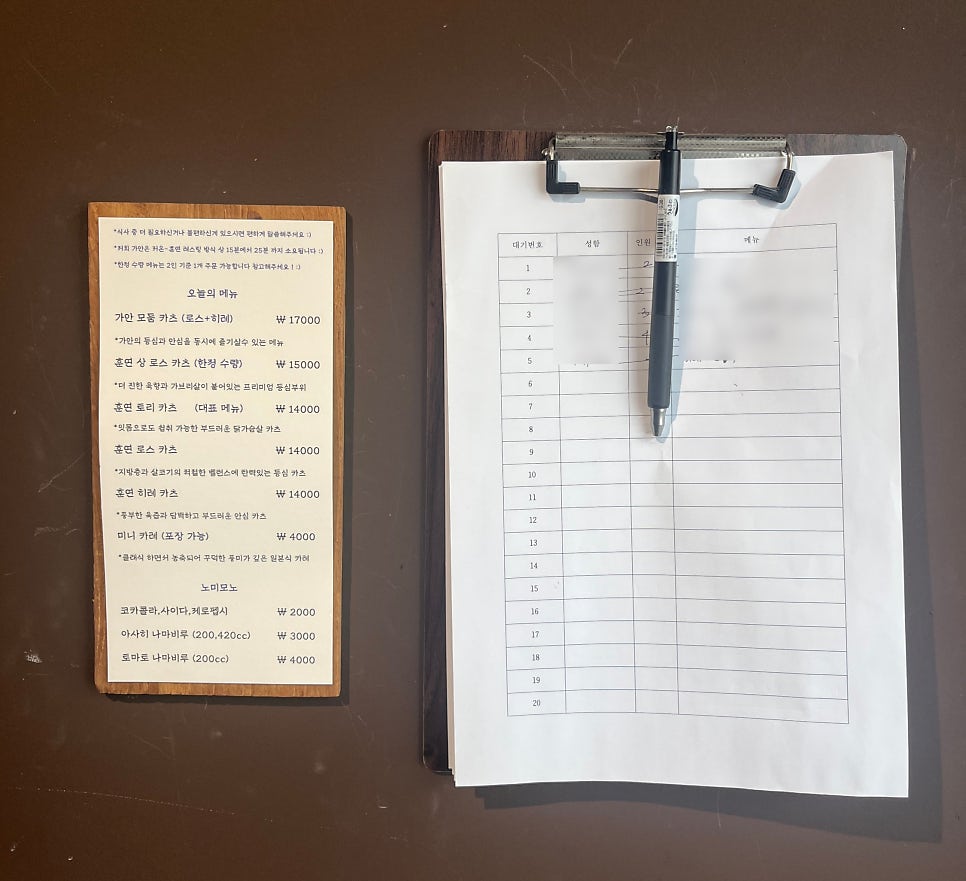 *식사 중 더 필요하신거나 불편하신게 있으시면 편하게 말씀해주세요 :)
*저희 가안은 저온-훈연 레스팅 방식 상 15분에서 25분 까지 소요됩니다 :)
*한정 수량 메뉴는 2인 기준 1개 주문 가능합니다 참고해주세요 ! :)
오늘의 메뉴
가안 모둠 카츠 (로스+히레) ₩ 17000
*가안의 등심과 안심을 동시에 즐기실수 있는 메뉴
훈연 상 로스 카츠 (한정 수량) ₩ 15000
*더 진한 육향과 가브리살이 붙어있는 프리미엄 등심부위
훈연 토리 카츠 (대표 메뉴) ₩ 14000
*잇몸으로도 섭취 가능한 부드러운 닭가슴살 카츠
훈연 로스 카츠 ₩ 14000
*지방층과 살코기의 적절한 밸런스에 탄력있는 등심 카츠
훈연 히레 카츠 ₩ 14000
*풍부한 육즙과 담백하고 부드러운 안심 카츠
미니 카레 (포장 가능) ₩ 4000
*클래식 하면서 농축되어 꾸덕한 풍미가 깊은 일본식 카레
노미모노
코카콜라,사이다,제로펩시 ₩ 2000
아사히 나마비루 (200,420cc) ₩ 3000
토마토 나마비루 (200cc) ₩ 4000
대기번호 성함 인원 메뉴
1 2
2 2
3 3
4 4
5
6
7
8
9
10
11
12
13
14
15
16
17
18
19
20